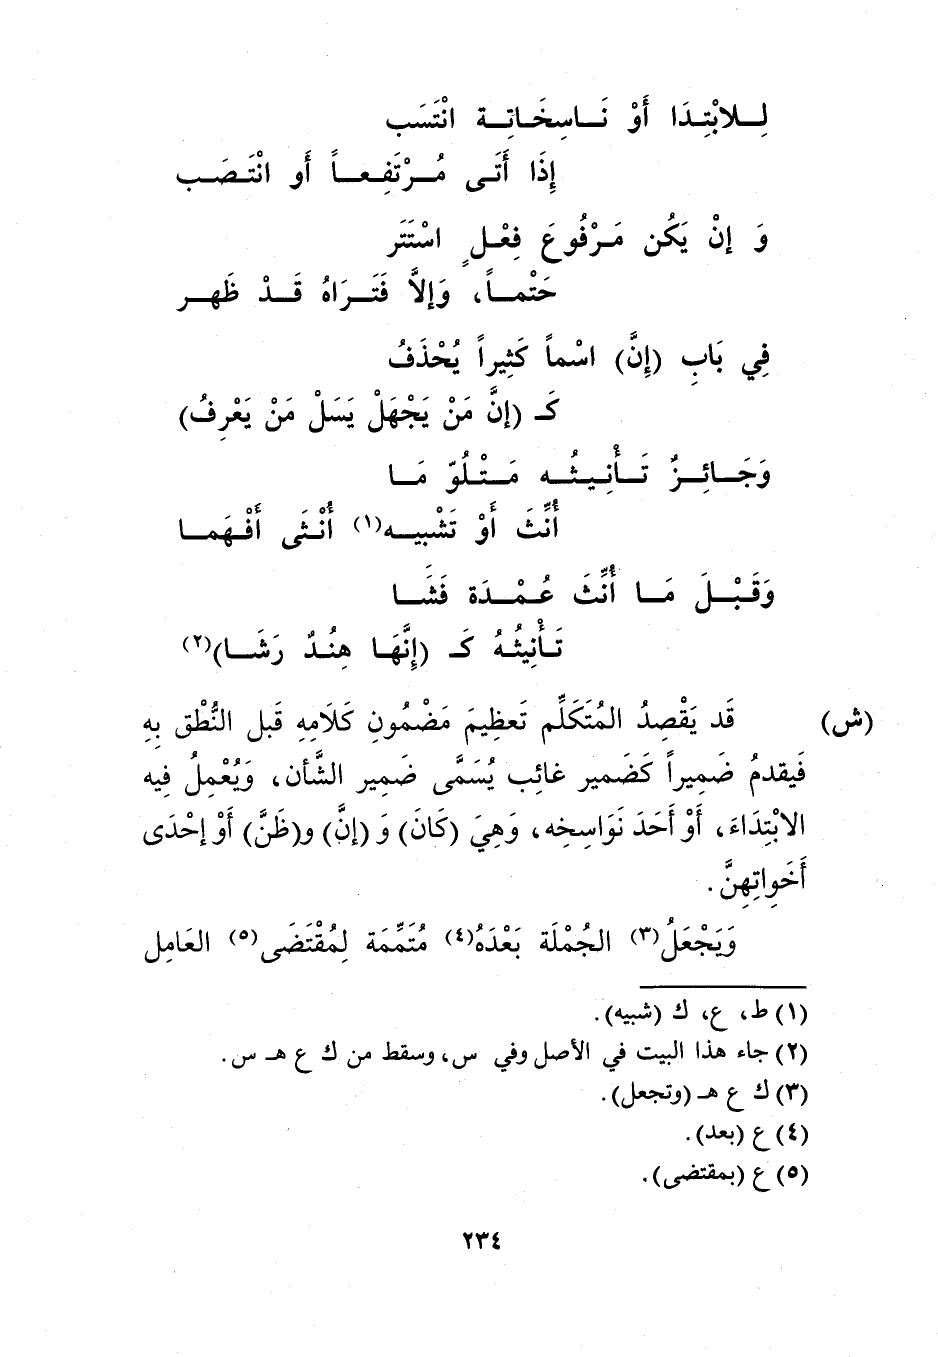 لِـلابْتِـدَا أَوْ نَـاسِخَـاتِـهَ انْتَسَب
إِذَا أَتَـى مُـرْتَفِـعـاً أَو انْتَـصَـب
وَ إنْ يَكُن مَـرْفُوعَ فِعْـلٍ اسْتَتَر
حَتْمـاً، وَإلاَّ فَتَـرَاهُ قَـدْ ظَهـر
فِي بَابِ (إِنَّ) اسْماً كَثِيراً يُحْذَفُ
كَـ (إنَّ مَنْ يَجْهَلْ يَسَلْ مَنْ يَعْرِفُ)
وَجَـائِـزٌ تَـأْنِيـثُـه مَـتْلُوّ مَـا
أُنِّثَ أَوْ تَشْبيـه(١) أُنْـثَى أَفْـهَمـا
وَقَبْـلَ مَـا أُنِّثَ عُـمْـدَة فَشَـا
تَـأْنِيثُـهُ كَـ (إِنَّهَا هِنْدٌ رَشَـا)(٢)
(ش) قَد يَقْصِدُ المُتَكَلِّم تَعظِيمَ مَضْمُونِ كَلَامِهِ قَبل النُّطْق بِهِ
فَيقدمُ ضَمِيراً كَضَمير غائِب يُسَمَّى ضَمِير الشَّأن، وَيُعْمِلُ فِيه
الابْتِدَاءَ، أَوْ أَحَدَ نَوَاسِخِه، وَهِيَ (كَانَ) وَ (إنَّ) و(ظَنَّ) أَوْ إحْدَى
أَخَواتِهِنَّ.
وَيَجْعَلُ(٣) الجُمْلَة بَعْدَهُ(٤) مُتَمِّمَة لِمُقْتَضَى(٥) العَامِل
(١) ط، ع، ك (شبيه).
(٢) جاء هذا البيت في الأصل وفي س، وسقط من ك ع هـ س.
(٣) ك ع هـ (وتجعل).
(٤) ع (بعد).
(٥) ع (بمقتضى).
٢٣٤